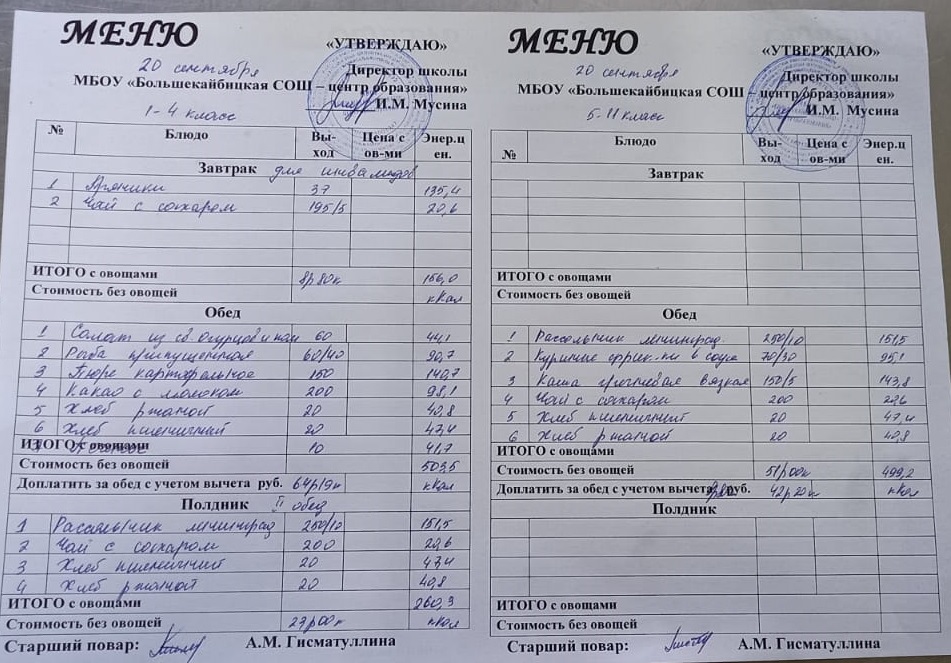 МЕНЮ
«УТВЕРЖДАЮ»
20 сентября
Директор школы
МБОУ «Большекайбицкая СОШ – центр образования»
И.М. Мусина
1-4 класс
№ Блюдо Вы-ход Цена с ов-ми Энер.ц ен.
Завтрак для инвалидов
1 Пряники 37 135,4
2 Чай с сахаром 195/5 20,6
ИТОГО с овощами 8р80к 156,0
Стоимость без овощей кКал
Обед
1 Солат из св огурцов 60 44,1
2 Рыба припущенная 60/40 90,7
3 Пюре картофельное 150 140,7
4 Какао с молоком 200 98,1
5 Хлеб ржаной 20 40,8
6 Хлеб пшеничный 20 47,4
ИТОГО с овощами 10 41,7
Стоимость без овощей 503,5
Доплатить за обед с учетом вычета руб. 64р19к кКал
Полдник II обед
1 Рассольник ленинград 250/10 151,5
2 Чай с сахаром 200 20,6
3 Хлеб пшеничный 20 47,4
4 Хлеб ржаной 20 40,8
ИТОГО с овощами 260,3
Стоимость без овощей 27р00к кКал
Старший повар: А.М. Гисматуллина
МЕНЮ
«УТВЕРЖДАЮ»
20 сентября
Директор школы
МБОУ «Большекайбицкая СОШ – центр образования»
И.М. Мусина
5-11 класс
№ Блюдо Вы-ход Цена с ов-ми Энер.ц ен.
Завтрак
ИТОГО с овощами
Стоимость без овощей
Обед
1 Рассольник ленинград. 250/10 151,5
2 Куриные в соусе 70/30 95,1
3 Каша гречневая вязкая 150/5 143,8
4 Чай с сахаром 200 20,6
5 Хлеб пшеничный 20 47,4
6 Хлеб ржаной 20 40,8
ИТОГО с овощами
Стоимость без овощей 51р00к 499,2
Доплатить за обед с учетом вычета руб. 42р20к кКал
Полдник
ИТОГО с овощами
Стоимость без овощей
Старший повар: А.М. Гисматуллина